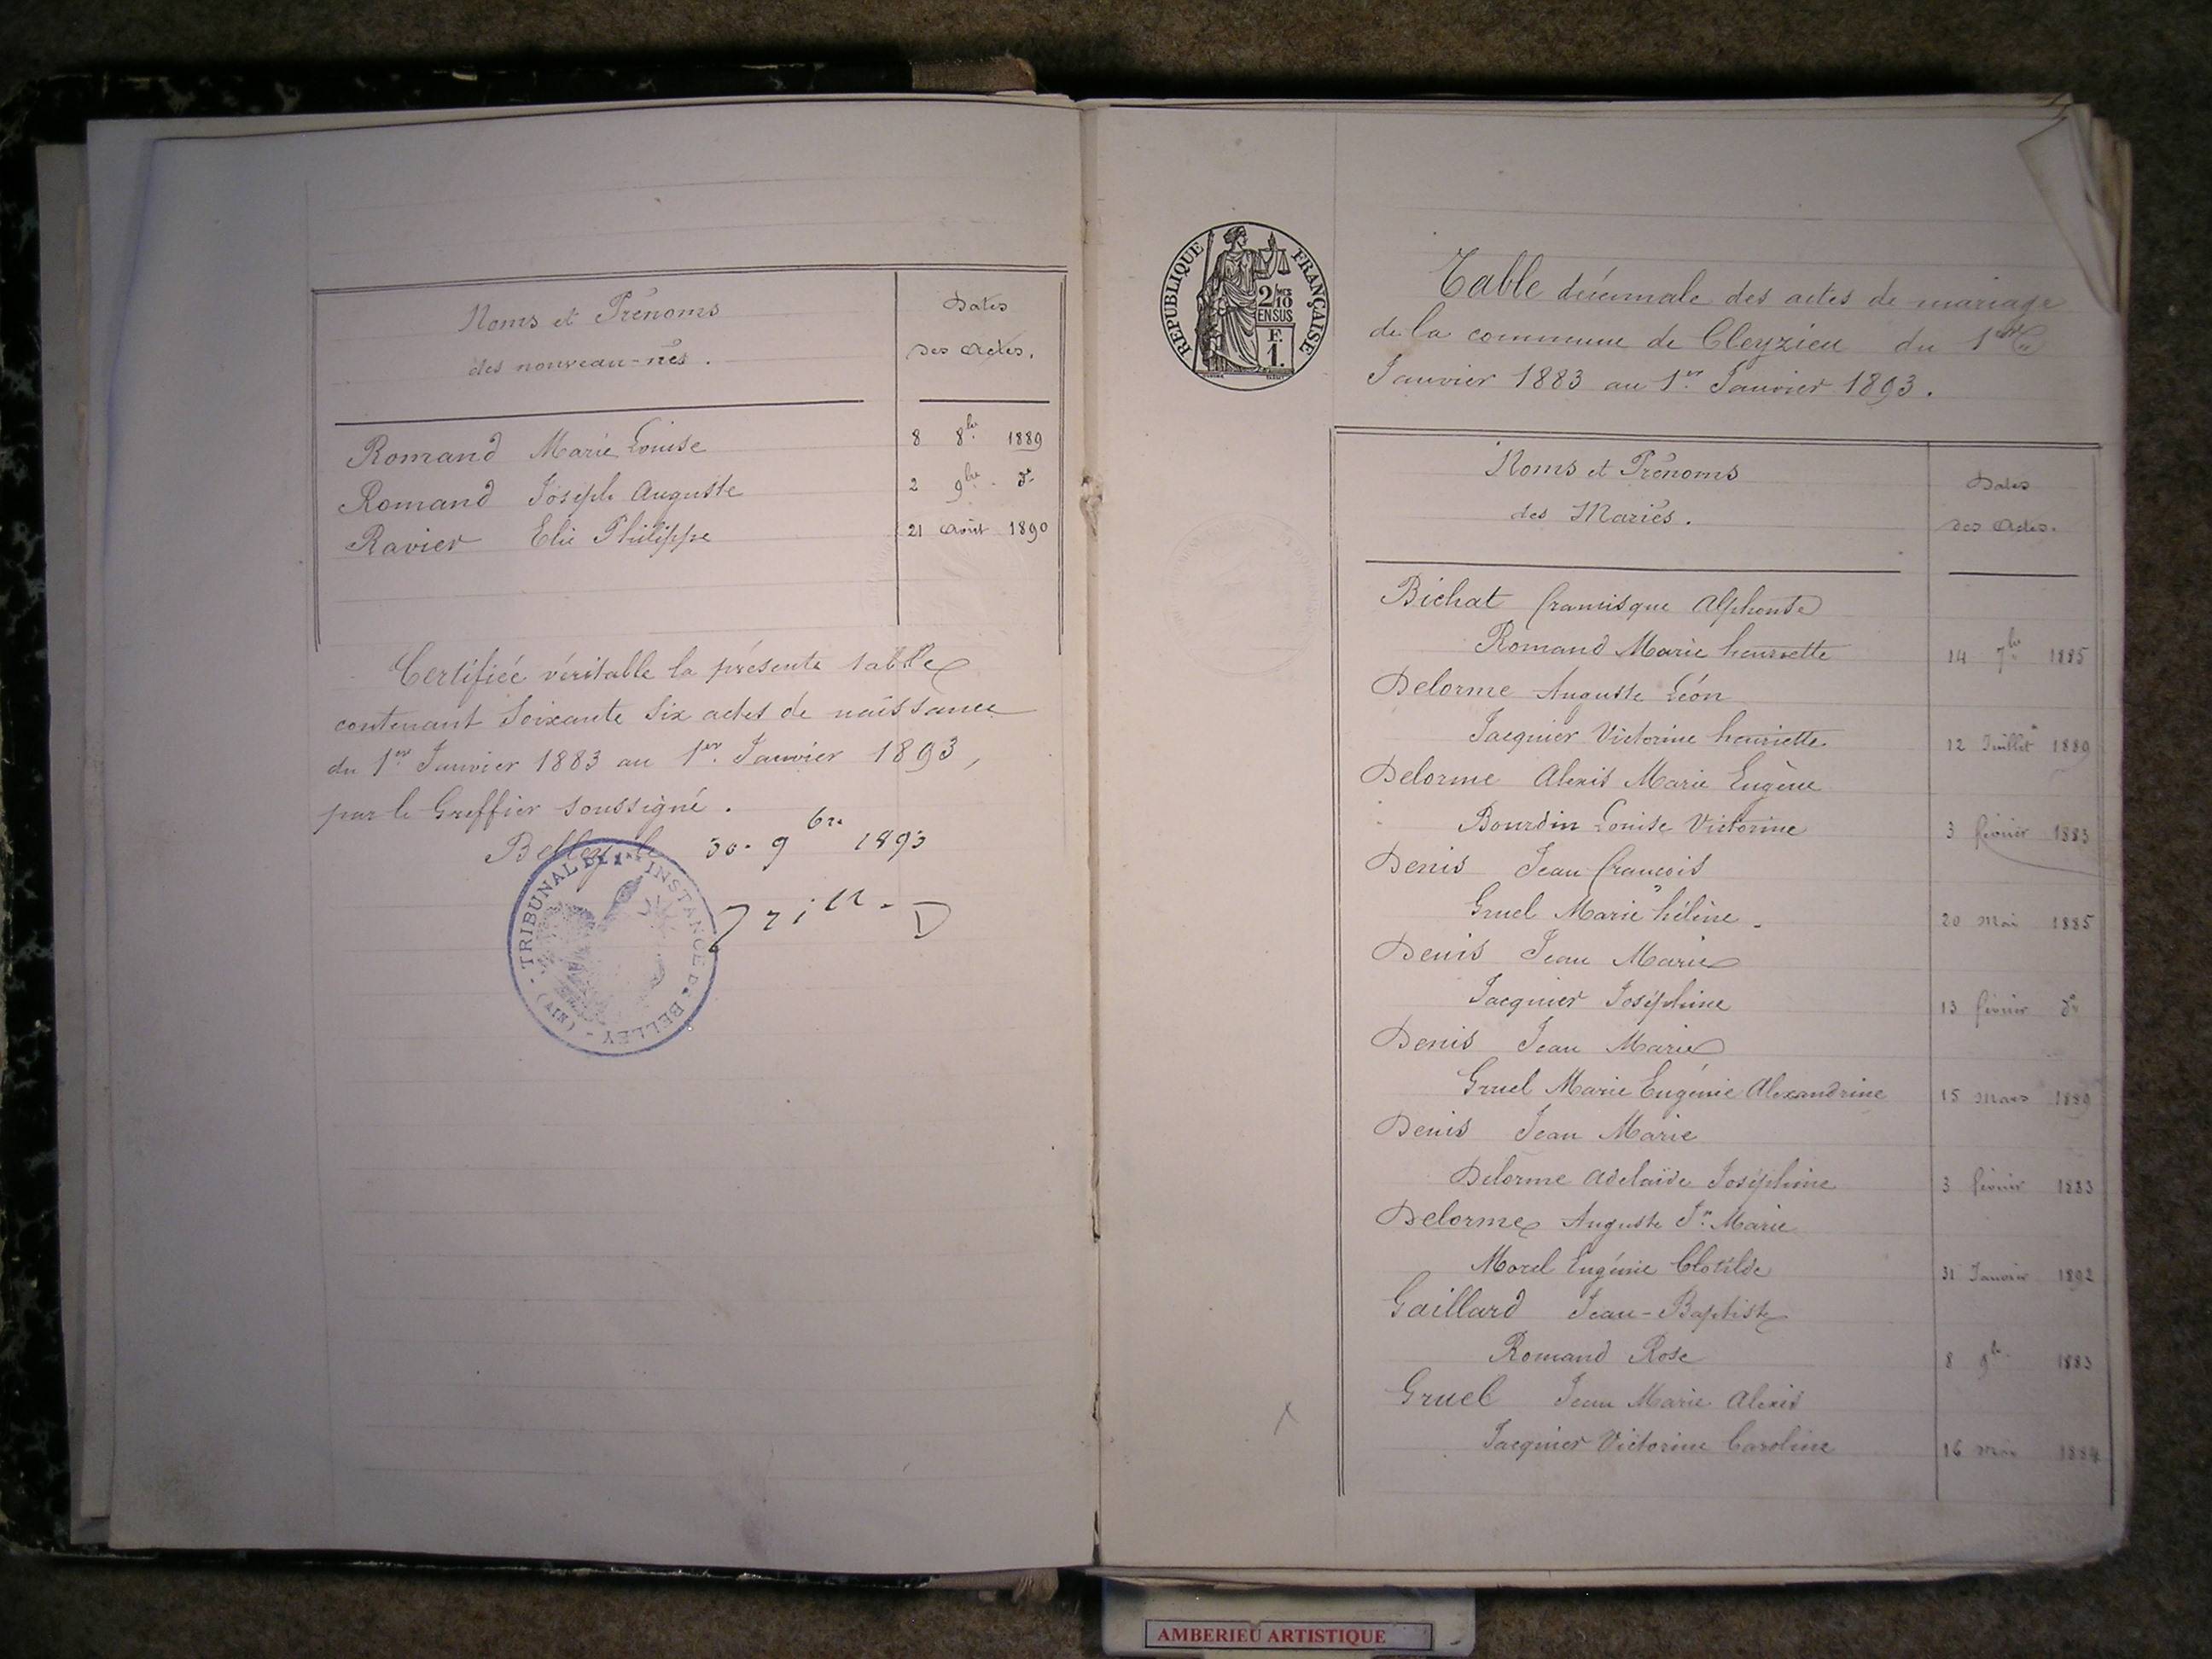 Noms et Prénoms
des nouveau-nés.
Dates
des Actes.
Romand Marie Louise 8 8bre 1889
Romand Joseph Auguste 2 9bre do
Ravier Elie Philippe 21 Août 1890
Certifiée véritable la présente table
contenant soixante six actes de naissance
du 1er Janvier 1883 au 1er Janvier 1893,
par le Greffier soussigné.
Belley le 30 - 9bre 1893
TRIBUNAL DE 1re INSTANCE DE BELLEY
(AIN)
REPUBLIQUE FRANÇAISE
2/10 MES
EN SUS
F.
1.
Table décennale des actes de mariage
de la commune de Cleyzieu du 1er
Janvier 1883 au 1er Janvier 1893.
Noms et Prénoms
des Mariés.
Dates
des Actes.
Bichat francisque Alphonse
Romand Marie henriette 14 7bre 1885
Delorme Auguste Léon
Jacquier Victorine henriette 12 Juillet 1889
Delorme Alexis Marie Eugène
Bourdin Louise Victorine 3 février 1883
Denis Jean françois
Gruel Marie hélène. 20 Mai 1885
Denis Jean Marie
Jacquier Joséphine 13 février do
Denis Jean Marie
Gruel Marie Eugénie Alexandrine 15 Mars 1889
Denis Jean Marie
Delorme Adelaïde Joséphine 3 février 1883
Delorme Auguste Jn Marie
Morel Eugénie Clotilde 31 Janvier 1892
Gaillard Jean-Baptiste
Romand Rose 8 9bre 1883
Gruel Jean Marie Alexis
Jacquier Victorine Caroline 16 Mai 1884
AMBERIEU ARTISTIQUE